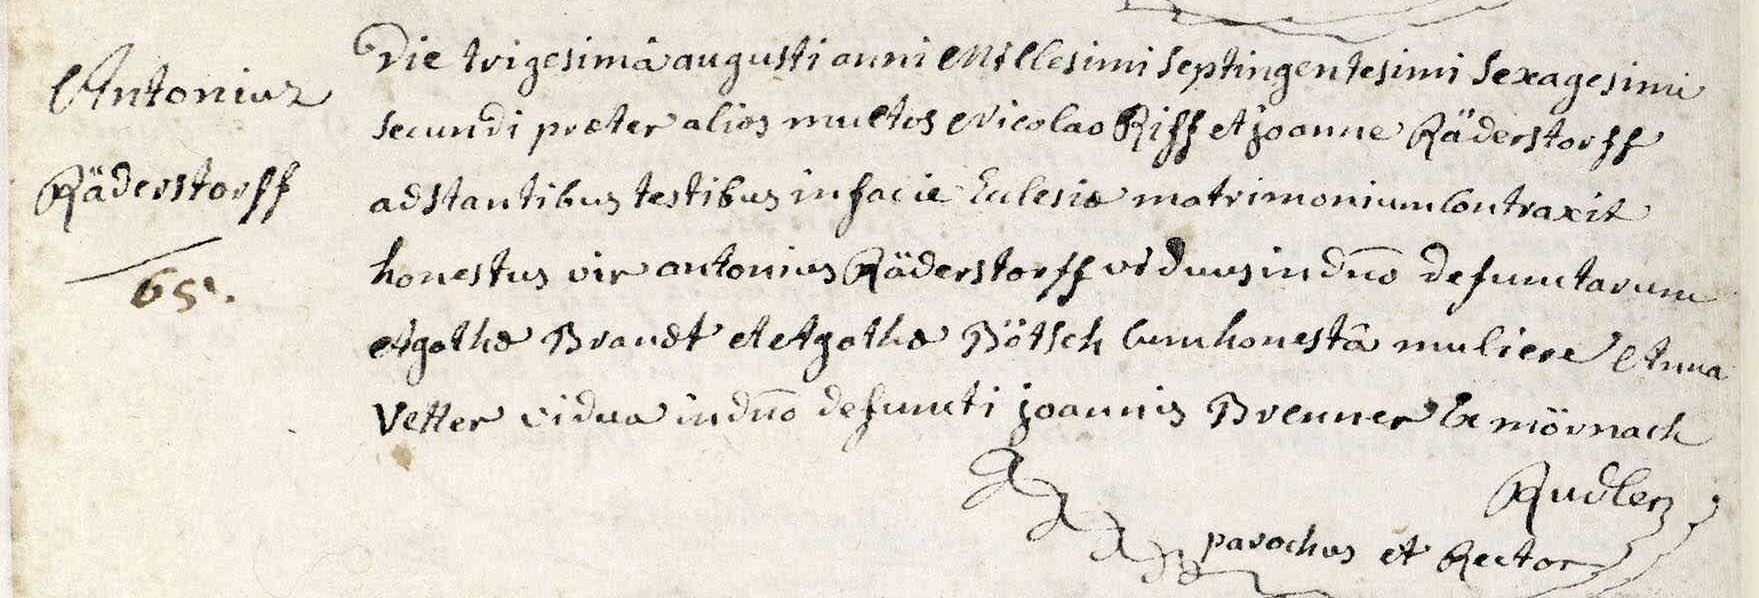 Antonius
Räderstorff
65.
Die trigesimâ augusti anni Millesimi Septingentesimi Sexagesimi
secundi præter alios multos Nicolao Riff et joanne Räderstorff
adstantibus testibus in facie Ecclesiæ matrimonium Contraxit
honestus vir antonius Räderstorff viduus in dño defunctarum
Agathæ Brandt et Agathæ Bötsch Cum honestâ muliere Anna
Vetter vidua in dño defuncti joannis Brenner Ex mörnach
Rudler
parochus et Rector